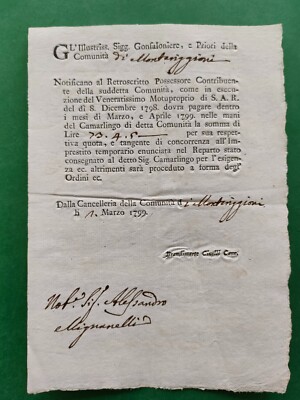 GL'Illustriss. Sigg. Gonfaloniere, e Priori della
Comunità di Monteriggioni
Notificano al Retroscritto Possessore Contribuente
della suddetta Comunità, come in esecuzione
del Veneratissimo Motuproprio di S. A. R.
del dì 8. Dicembre 1798. dovrà pagare dentro
i mesi di Marzo, e Aprile 1799. nelle mani
del Camarlingo di detta Comunità la somma di
Lire 73.4.8 per sua respettiva
quota, e tangente di concorrenza all'Imprestito
temporario enunciata nel Reparto stato
consegnato al detto Sig. Camarlingo per l'esigenza
ec. altrimenti sarà proceduto a forma degl'
Ordini ec.
Dalla Cancelleria della Comunità di Monteriggioni
li 1. Marzo 1799.
Canc.
Nob. Sig. Alessandro
Mignanelli